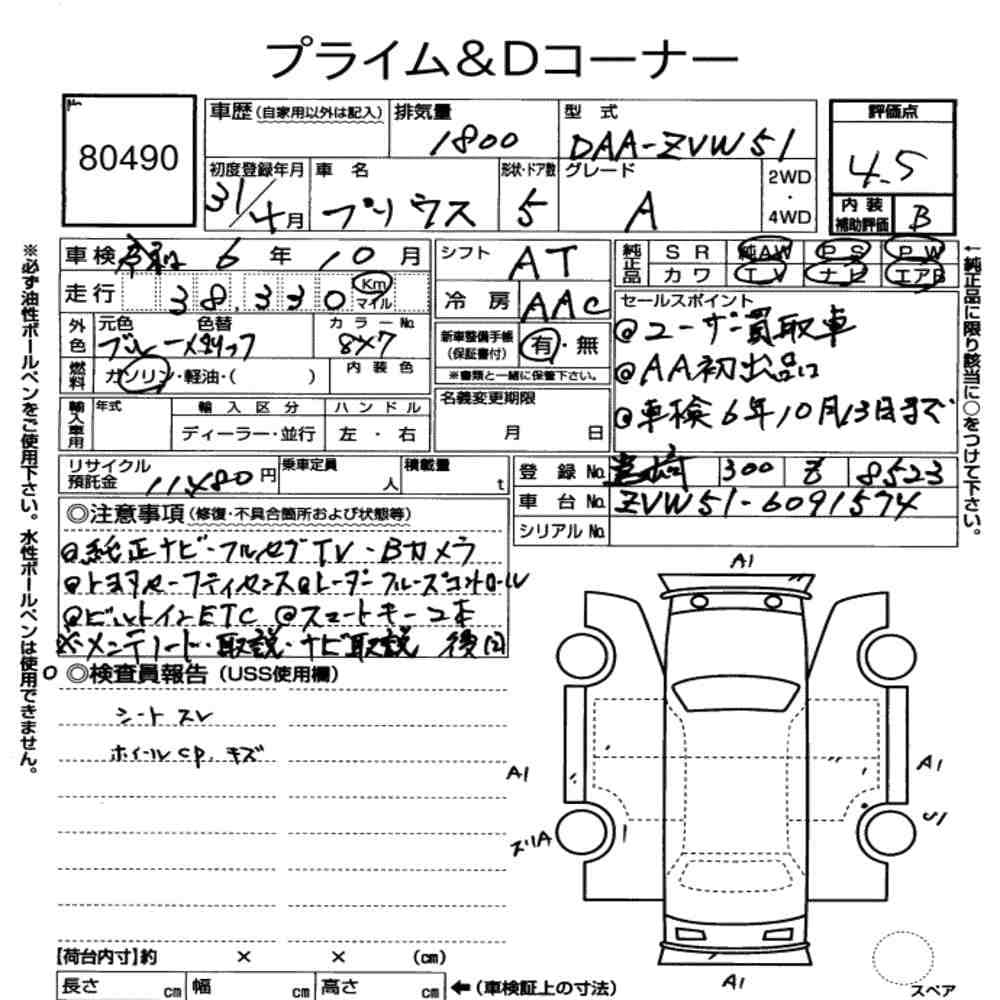 プライム&Dコーナー
80490
車歴 (自家用以外は記入)
排気量
1800
型式
DAA-ZVW51
評価点
4.5
初度登録年月
31/4月
車名
プリウス
形状・ドア数
5
グレード
A
2WD
・
4WD
内装
補助評価
B
※必ず油性ボールペンをご使用下さい。水性ボールペンは使用できません。
車検 令和 6年 10月
シフト
AT
純正品
SR 純AW PS PW
カワ TV ナビ エアB
←純正品に限り該当に○をつけて下さい。
走行
38,330
Km
マイル
冷房
AAC
セールスポイント
@ユーザー買取車
@AA初出品
@車検6年10月13日まで
外色
元色
色替
ブルーメタリック
カラーNo.
8X7
新車整備手帳
(保証書付)
有・無
※書類と一緒に保管下さい。
燃料
ガソリン・軽油・( )
内装色
名義変更期限
月 日
輸入車用
年式
輸入区分
ディーラー・並行
ハンドル
左・右
リサイクル
預託金
円
乗車定員
人
積載量
t
登録No.
300
8523
車台No.
ZVW51-6091574
シリアルNo.
◎注意事項 (修復・不具合箇所および状態等)
@純正ナビ・フルセグTV・Bカメラ
@トヨタセーフティセンス@レーダークルーズコントロール
@ビルトインETC @スマートキー2本
※メンテノート・取説・ナビ取説 後日
◎検査員報告 (USS使用欄)
シートスレ
ホイールcp.キズ
A1
A1
A1
ズリA
U1
A1
スペア
【荷台内寸】約 × × (cm)
長さ cm 幅 cm 高さ cm ←(車検証上の寸法)